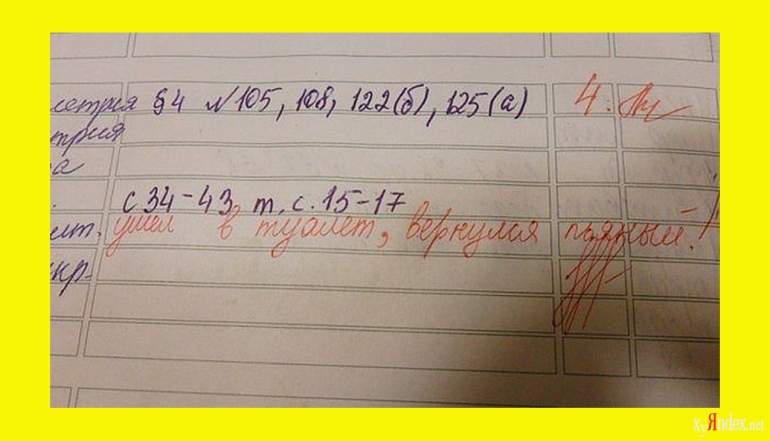 метрия §4 №105, 108, 122(б), 125(а) 4.
трия
а
с 34-43 т. с. 15-17
ушел в туалет, вернулся пьяный!
укр-
ХуЯndex.net